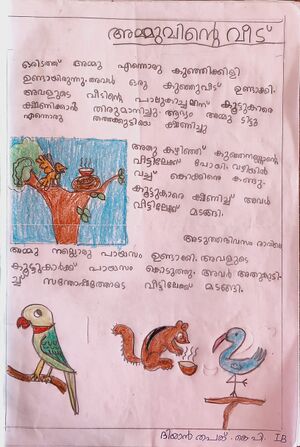 അമ്മുവിന്റെ വീട്
ഒരിടത്ത് അമ്മു എന്നൊരു കുഞ്ഞിക്കിളി
ഉണ്ടായിരുന്നു. അവൾ ഒരു കുഞ്ഞുവീട് ഉണ്ടാക്കി.
അവളുടെ വീടിന്റെ പാലുകാച്ചലിന് കൂട്ടുകാരെ
ക്ഷണിക്കാൻ തീരുമാനിച്ചു. ആദ്യം അമ്മു
എന്നൊരു തത്തക്കുട്ടിയെ ക്ഷണിച്ചു
അതു കഴിഞ്ഞ്
വീട്ടിലേക്ക് പോകി. വഴിയിൽ
വച്ച് കൊക്കിനെ കണ്ടു.
കൂട്ടുകാരെ ക്ഷണിച്ച് അവർ
വീട്ടിലേക്ക് മടങ്ങി.
അടുത്തദിവസം രാവിലെ
അമ്മു നല്ലൊരു പായസം ഉണ്ടാക്കി. അവളുടെ
കൂട്ടുകാർക്ക് പായസം കൊടുത്തു. അവർ അതുകുടി
ച്ച് സന്തോഷത്തോടെ വീട്ടിലേക്ക് മടങ്ങി.
ദിയാൻ കെ.പി. I B